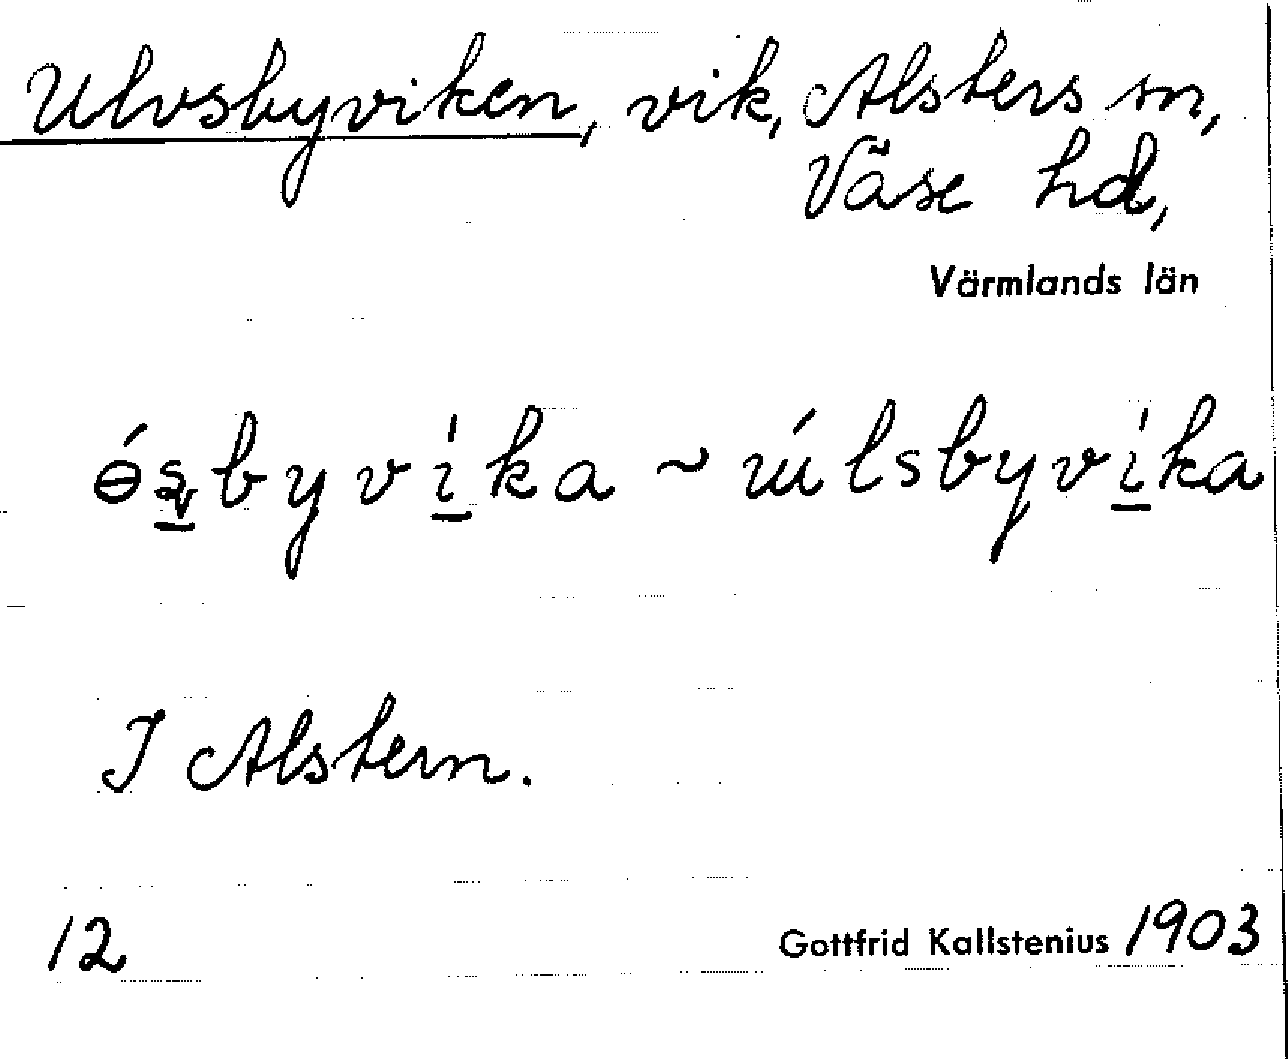 Ulvsbyviken, vik, Alsters sn,
Väse hd,
Värmlands län
ɵ́s̱byvi̱̍ka ~ úlsbyvi̱̍ka
I Alstern.
12 Gottfrid Kallstenius 1903